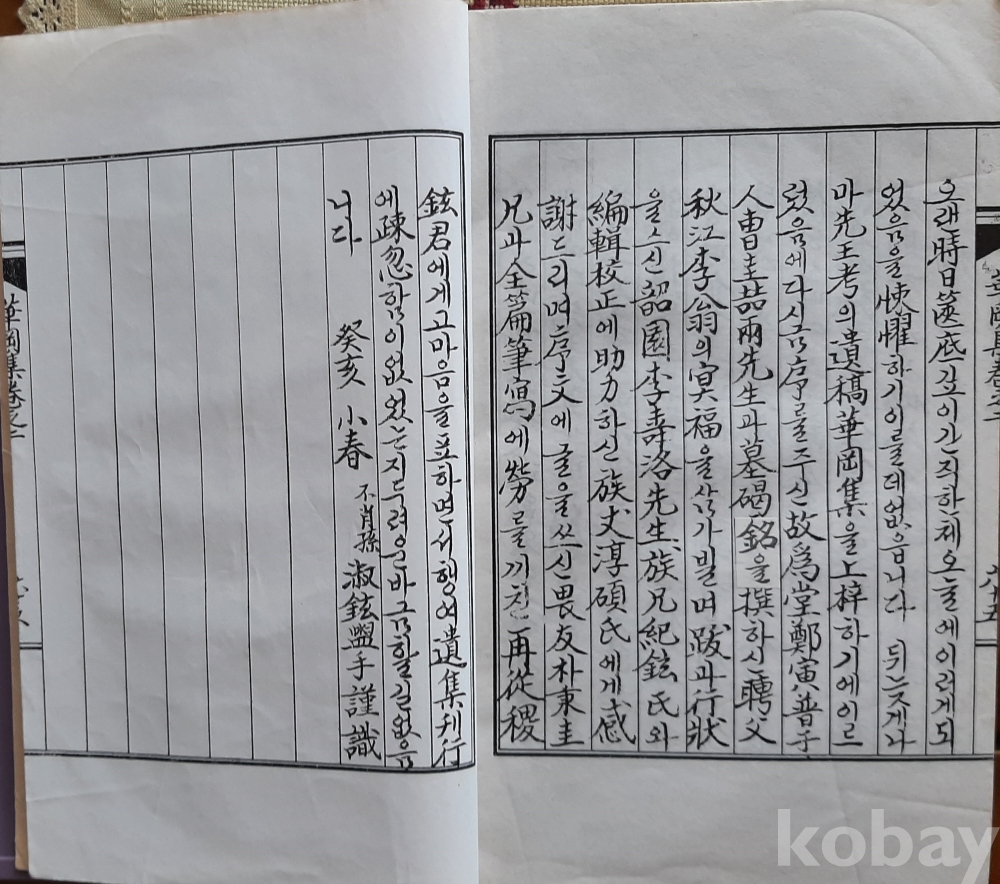 오랜 時日 篋底 깊이 간직한 체 오늘에 이러게 되
었음을 悚懼하기 이를데 없음니다 뒤늣게나
마 先王考의 遺稿 華岡集을 上梓하기에 이르
렀음에 다시금 序를 주신 故爲堂鄭寅普 
人曺圭喆 兩先生과 墓碣銘을 撰하신 聘父
秋江李翁의 冥福을 삼가 빌며 跋과 行狀
을 쓰신 韶園李壽洛先生 族兄紀鉉氏와
編輯校正에 助力하신 族丈淳碩氏에게 感
謝드리며 序文에 글을 쓰신 畏友朴秉圭
兄과 全篇筆寫에 勞를 끼친 再從稷
鉉君에게 고마음을 표하면서 행여 遺集刊行
에 疎忽함이 없었는지 두려운 바 금할길 없음
니다
癸亥 小春
不肖孫 淑鉉 盥手謹識
華岡集卷之二